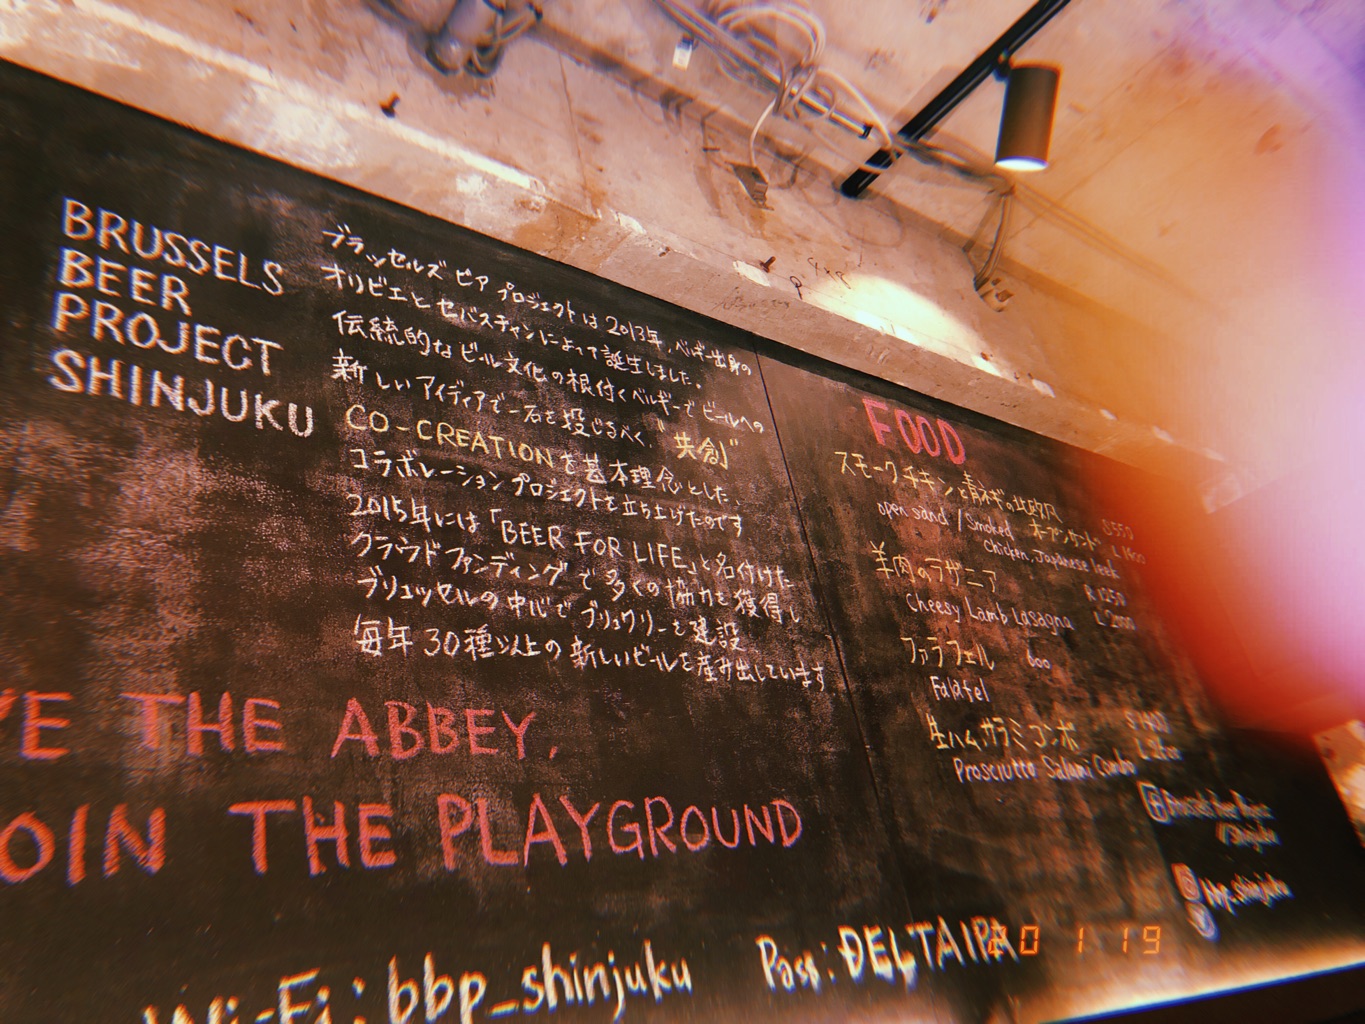 BRUSSELS
BEER
PROJECT
SHINJUKU
ブラッセルズ ビア プロジェクトは2013年、ベルギー出身の
オリビエとセバスチャンによって誕生しました。
伝統的なビール文化の根付くベルギーでビールへの
新しいアイディアで一石を投じるべく、"共創"
CO-CREATIONを基本理念とした、
コラボレーションプロジェクトを立ち上げたのです
2015年には「BEER FOR LIFE」と名付けた
クラウドファンディングで多くの協力を獲得し
ブリュッセルの中心でブリュワリーを建設
毎年30種以上の新しいビールを産み出しています
THE ABBEY,
OIN THE PLAYGROUND
Wi-Fi: bbp_shinjuku Pass: DELTAIPA
FOOD
スモークチキンと青ネギの北欧風
オープンサンド
open sand / Smoked
Chicken, Japanese leak
羊肉のラザニア R 1250
Cheesy Lamb Lasagna
ファラフェル 600
Falafel
生ハム、サラミコンボ
Prosciutto Salami Combo
Brussels Beer Project
/Shinjuku
bbp.shinjuku
0 1 19